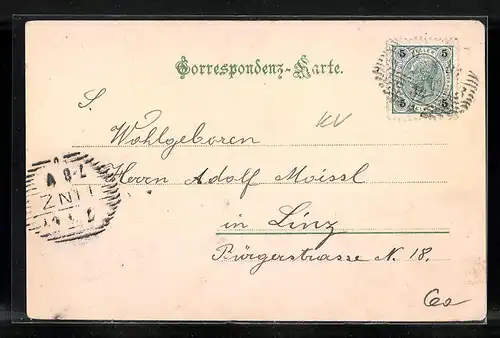 Correspondenz-Karte.
5 5
5 5
S.
Wohlgeboren
KV
Herrn Adolf Moissl
in Linz
Bürgerstrasse N. 18.
LINZ
7·8 V
60